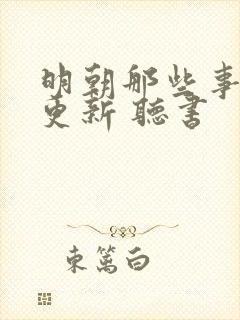 明朝那些事
更新 聽書
東篱白